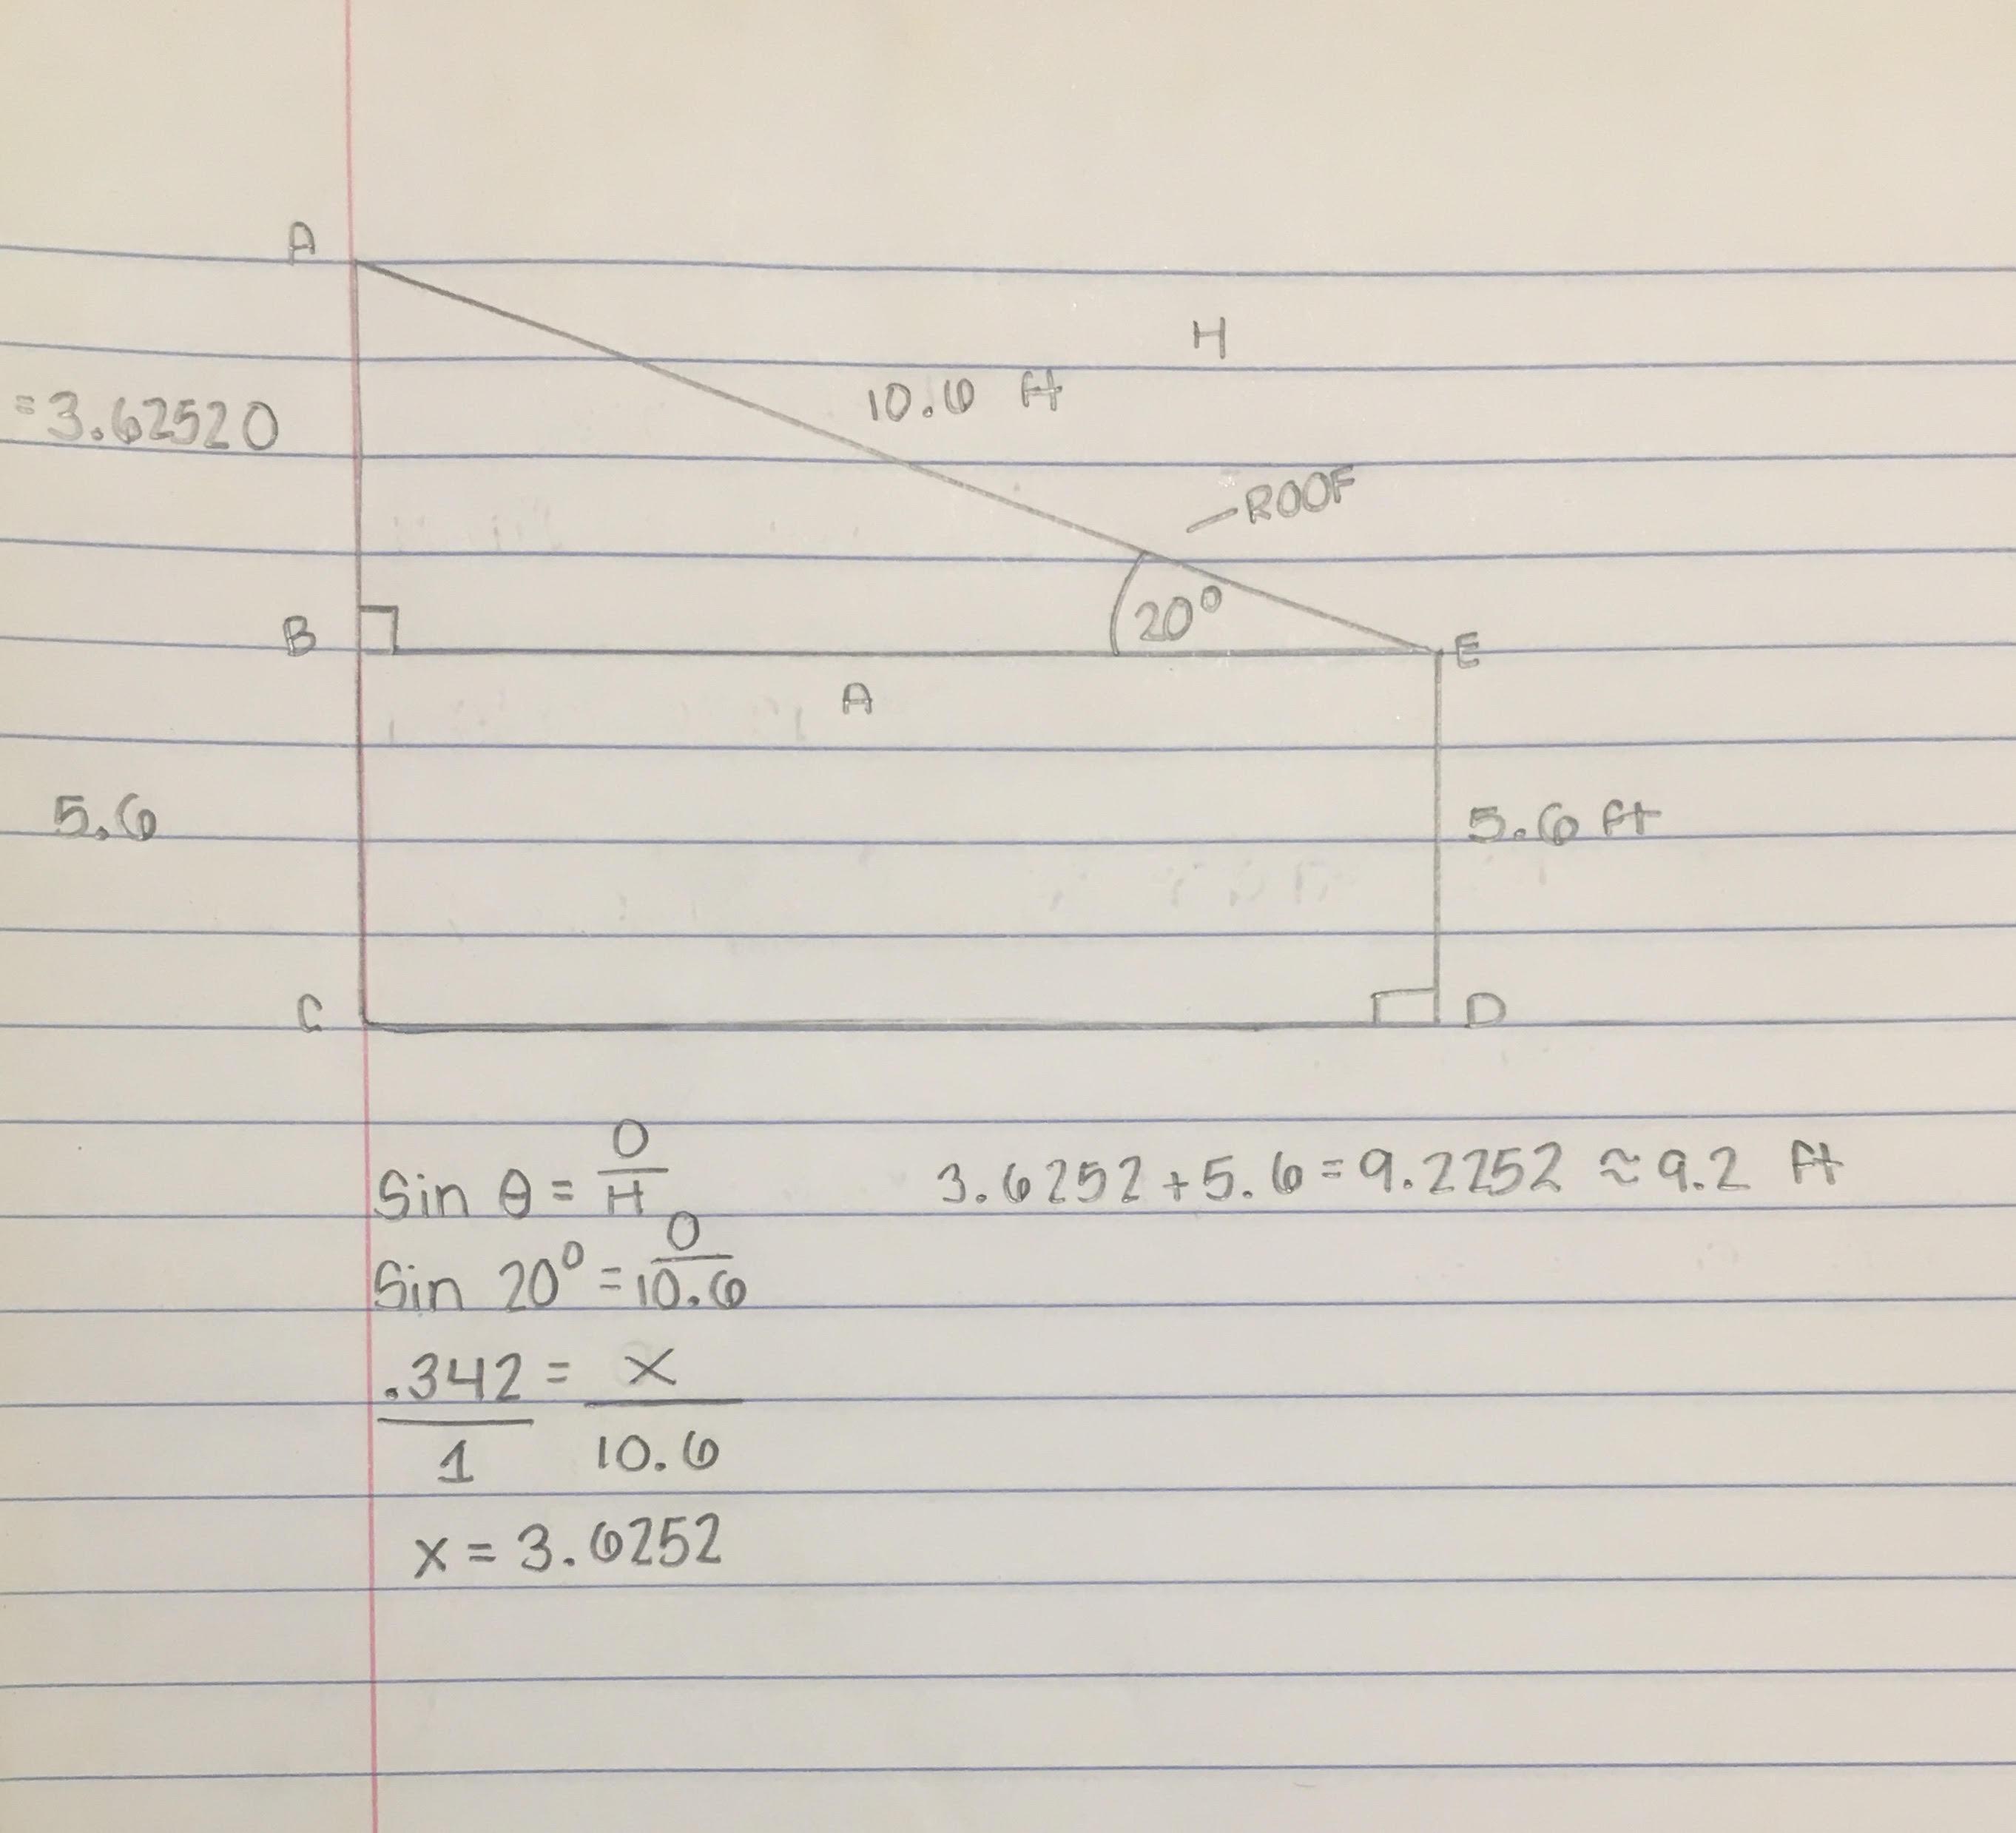 A
H
10.6 ft
=3.62520
ROOF
20°
B
E
A
5.6
5.6 ft
C
D
Sin θ = O/H
3.6252 + 5.6 = 9.2252 ≈ 9.2 ft
Sin 20° = O/10.6
.342/1 = x/10.6
x = 3.6252